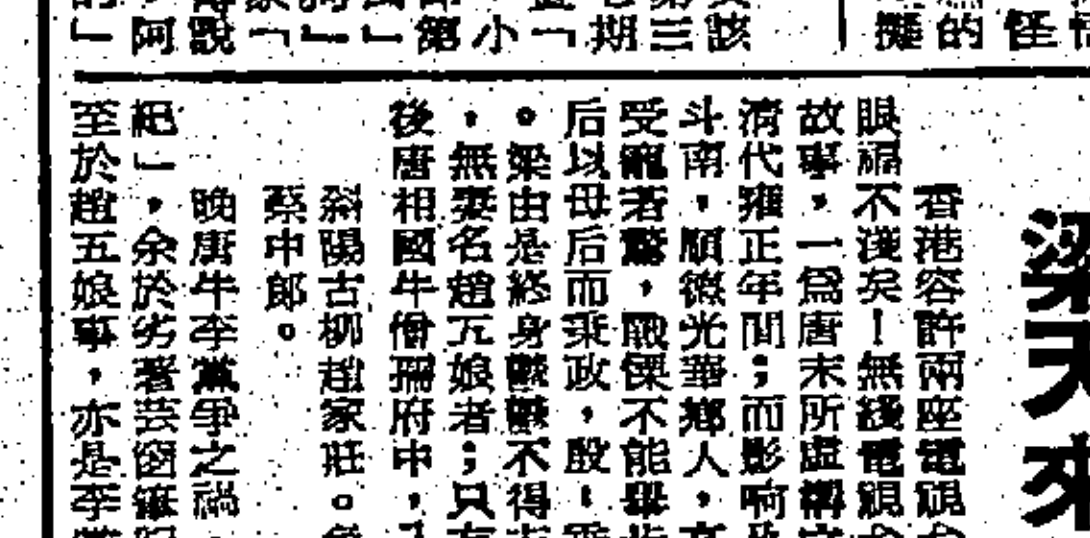 怪
的
擬
該
第三
期
「
小
第
」
」
「
說
阿
」
梁天來
香港容許兩座電視
眼福不淺矣！無綫電視
故事，一爲唐末所虛構
清代雍正年間；而影响
斗南，順德光華鄉人，
受寵若驚，戰慄不能舉步
后以母后而秉政，殷
。梁由是終身鬱鬱不得
，無妻名趙五娘者；只有
後唐相國牛僧孺府中，
斜陽古柳趙家莊。
蔡中郎。
晚唐牛李黨爭之禍
紀」，余於劣著芸窗
至於趙五娘事，亦是李黨